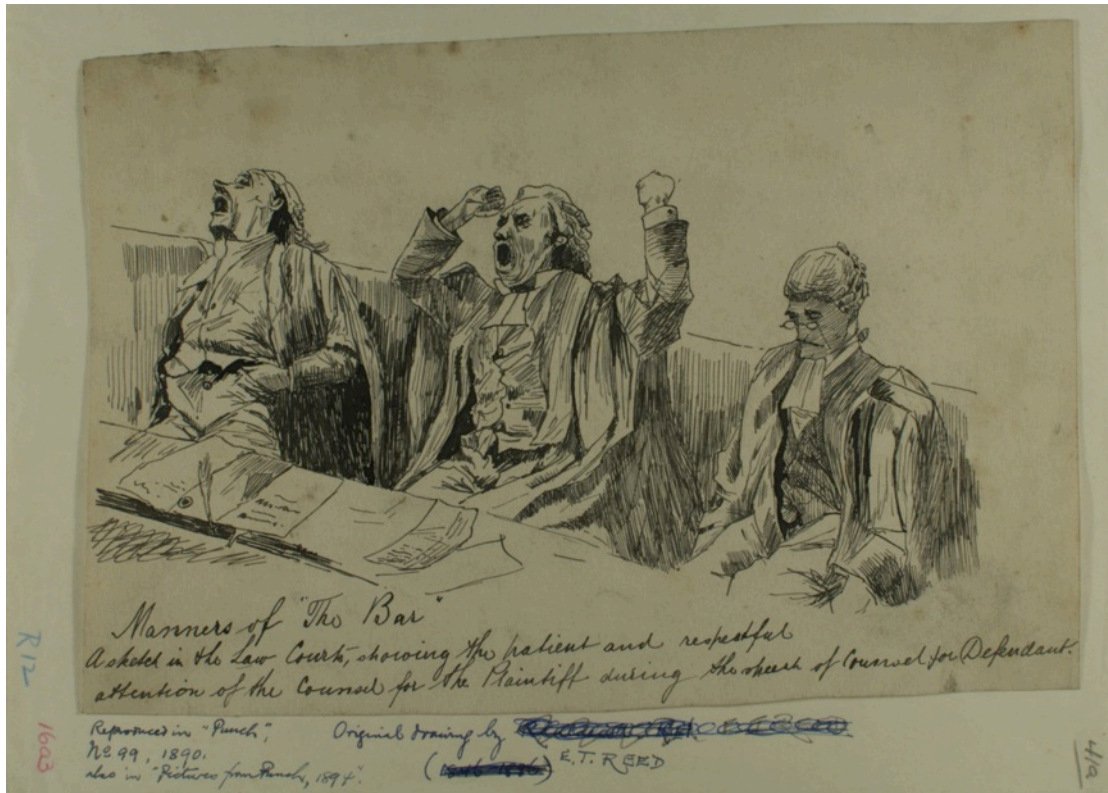 Manners of "The Bar"
A sketch in the Law Courts, showing the patient and respectful
attention of the Counsel for the Plaintiff during the speech of Counsel for Defendant.
Reproduced in "Punch",
No 99, 1890.
also in "Pictures from Punch, 1894".
Original drawing by
( ) E.T. REED
R12
16a3
41a